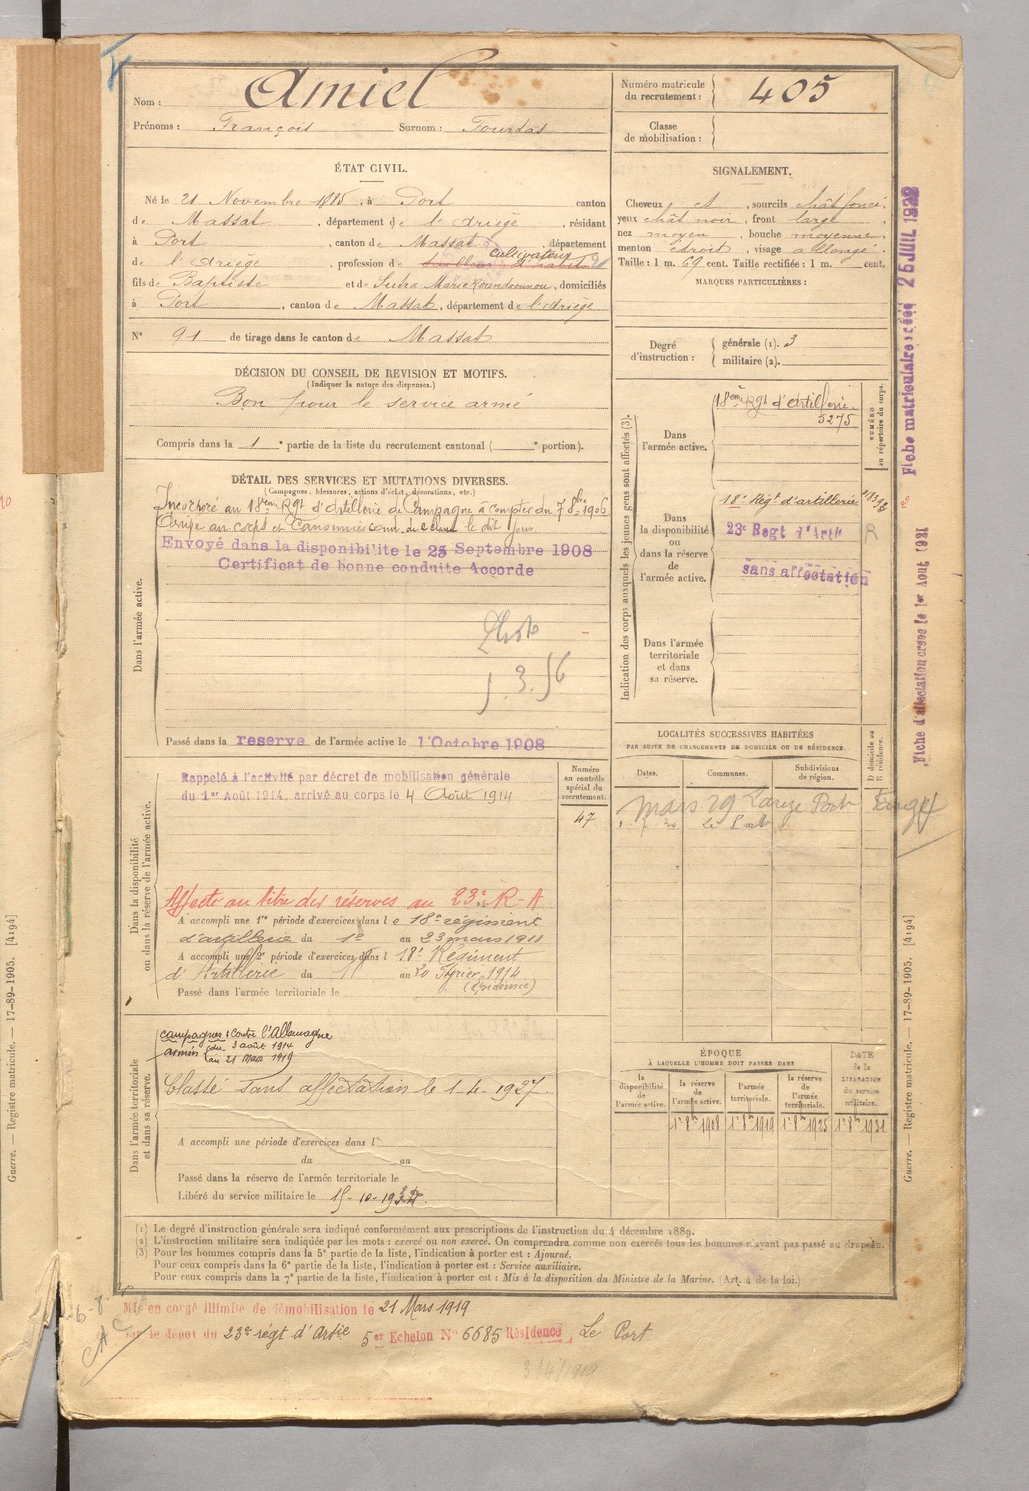 Nom : Amiel
Prénoms : François Surnom : Tourdas
Numéro matricule du recrutement : 405
Classe de mobilisation :
ÉTAT CIVIL.
Né le 21 Novembre 1885, à Port canton
de Massat, département de l'Ariège, résidant
à Port, canton de Massat, département
de l'Ariège, profession de cultivateur
fils de Baptiste et de Sutra Marie, domiciliés
à Port, canton de Massat, département de l'Ariège
N° 91 de tirage dans le canton de Massat
SIGNALEMENT.
Cheveux et, sourcils chât foncé,
yeux chât noir, front large
nez moyen, bouche moyenne,
menton étroit, visage allongé.
Taille : 1 m. 69 cent. Taille rectifiée : 1 m. cent.
MARQUES PARTICULIÈRES :
Degré d'instruction : générale (1). 3
militaire (2).
DÉCISION DU CONSEIL DE REVISION ET MOTIFS.
(Indiquer la nature des dispenses.)
Bon pour le service armé
Compris dans la 1e partie de la liste du recrutement cantonal ( e portion).
DÉTAIL DES SERVICES ET MUTATIONS DIVERSES.
(Campagnes, blessures, actions d'éclat, décorations, etc.)
Dans l'armée active.
Incorporé au 18ème Rgt d'Artillerie de Campagne à compter du 7 8bre 1906
Arrivé au corps et Canonnier cond. de 2e classe le dit jour.
Envoyé dans la disponibilite le 25 Septembre 1908
Certificat de bonne conduite Accorde
Passé dans la reserve de l'armée active le 1 Octobre 1908
Indication des corps auxquels les jeunes gens sont affectés (3).
NUMÉRO au répertoire du corps.
Dans l'armée active.
18ème Rgt d'Artillerie
5275
Dans la disponibilité ou dans la réserve de l'armée active.
18e Régt d'artillerie
23e Regt d'Artie
sans affectation
R
Dans l'armée territoriale et dans sa réserve.
Fiche matriculaire créée 25 JUIL 1922
Fiche d'affectation creee le 1er Aout 1921
LOCALITÉS SUCCESSIVES HABITÉES
PAR SUITE DE CHANGEMENTS DE DOMICILE OU DE RÉSIDENCE.
D domicile ou R résidence.
Dates. Communes. Subdivisions de région.
mars 29 Port
le Port
Dans la disponibilité ou dans la réserve de l'armée active.
Rappelé à l'activité par décret de mobilisation générale
du 1er Août 1914, arrivé au corps le 4 Août 1914
Numéro au contrôle spécial du recrutement.
47
Affecté au titre des réserves au 23e R-A
A accompli une 1re période d'exercices dans le 18e régiment
d'artillerie du 1er au 23 mars 1911
A accompli une 2e période d'exercices dans l 18e Régiment
d'Artillerie du au 20 Février 1914
Passé dans l'armée territoriale le
Dans l'armée territoriale et dans sa réserve.
campagnes : contre l'Allemagne
armées du 3 août 1914
au 21 Mars 1919
Classé sans affectation le 1-4-1927
A accompli une période d'exercices dans l
du au
Passé dans la réserve de l'armée territoriale le
Libéré du service militaire le 15-10-1934.
ÉPOQUE
À LAQUELLE L'HOMME DOIT PASSER DANS
la disponibilité de l'armée active.
la réserve de l'armée active.
l'armée territoriale.
la réserve de l'armée territoriale.
DATE de la LIBÉRATION du service militaire.
1er 8bre 1908 1er 8bre 1919 1er 8bre 1925 1er 8bre 1931
(1) Le degré d'instruction générale sera indiqué conformément aux prescriptions de l'instruction du 4 décembre 1889.
(2) L'instruction militaire sera indiquée par les mots : exercé ou non exercé. On comprendra comme non exercés tous les hommes n'ayant pas passé au drapeau.
(3) Pour les hommes compris dans la 5e partie de la liste, l'indication à porter est : Ajourné.
Pour ceux compris dans la 6e partie de la liste, l'indication à porter est : Service auxiliaire.
Pour ceux compris dans la 7e partie de la liste, l'indication à porter est : Mis à la disposition du Ministre de la Marine. (Art. 4 de la loi.)
Mis en congé illimite de démobilisation le 21 Mars 1919
le dépot du 23e régt d'Artie 5er Echelon N° 6685 Résidence Le Port
Guerre. — Registre matricule. — 17-89-1905. [4194]
Guerre. — Registre matricule. — 17-89-1905. [4194]